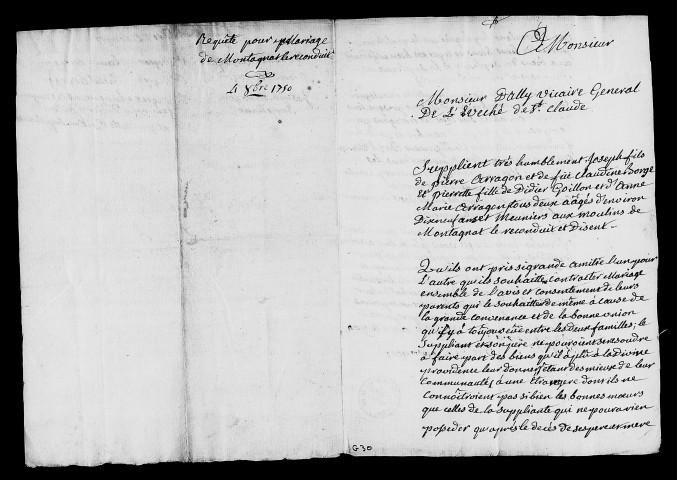 Requête pour Mariage
de Montagnat le reconduit
4 8bre 1750
A Monsieur
Monsieur Dally vicaire General
De L'Eveché de St. Claude
Supplient trés humblement Joseph fils
de pierre Arragon et de füe Claudine Borge
Et pierrette fille de Didier Goillon et d'Anne
Marie Arragon tous deux aâgés d'environ
Dixneuf ans et Meuniers aux moulins de
Montagnat le reconduit et Disent.
Qu'ils ont pris si grande amitié l'un pour
L'autre qu'ils souhaittent contracter Mariage
ensemble de l'avis et consentement de leurs
parents qui le souhaittent de même à cause de
la grande convenance et de la bonne union
qu'il y à toujours eüe entre les deux familles; le
Suppliant et son père ne pouvoient se resoudre
à faire part des biens qu'il à plû à la Divine
providence leur donner, étant des mieux de leur
Communauté, à une étrangere dont ils ne
Connoîtroient pas si bien les bonnes mœurs
que celles de la suppliante qui ne poura rien
posséder qu'aprés le decès de ses pere et mere
G30